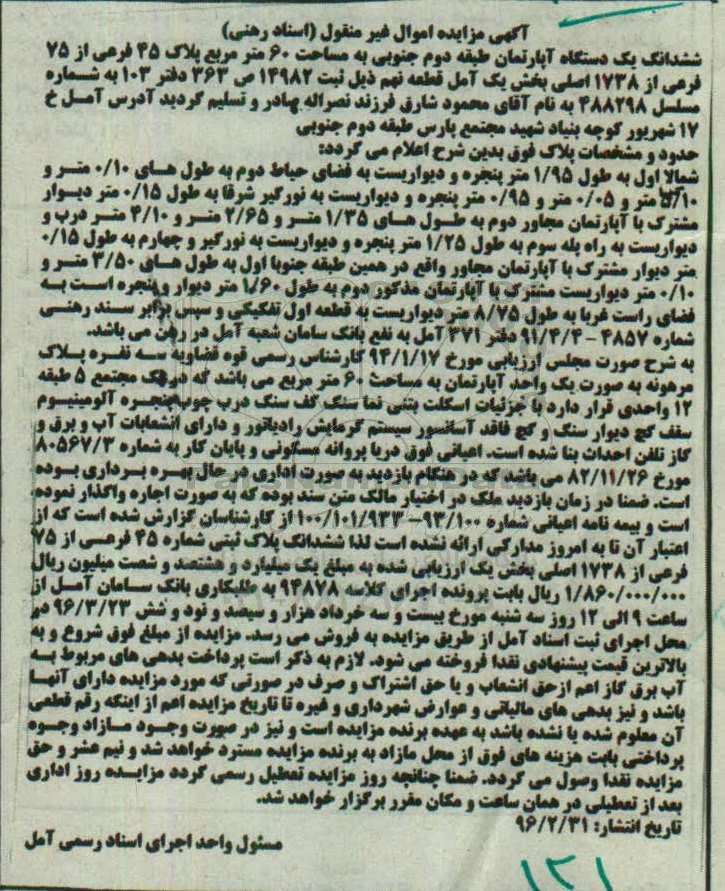 آگهی مزایده اموال غیر منقول (اسناد رهنی)
ششدانگ یک دستگاه آپارتمان طبقه دوم جنوبی به مساحت ۶۰ متر مربع پلاک ۴۵ فرعی از ۷۵
فرعی از ۱۷۳۸ اصلی بخش یک آمل قطعه نهم ذیل ثبت ۱۴۹۸۲ ص ۳۶۳ دفتر ۱۰۳ به شماره
مسلسل ۴۸۸۲۹۸ به نام آقای محمود شارق فرزند نصراله بهادر و تسلیم گردید آدرس آمل خ
۱۷ شهریور کوچه بنیاد شهید مجتمع پارس طبقه دوم جنوبی
حدود و مشخصات پلاک فوق بدین شرح اعلام می گردد:
شمالا اول به طول ۱/۹۵ متر پنجره و دیواریست به فضای حیاط دوم به طول های ۰/۱۰ متر و
۵/۱۰ متر و ۰/۰۵ متر و ۰/۹۵ متر پنجره و دیواریست به نورگیر شرقا به طول ۰/۱۵ متر دیوار
مشترک با آپارتمان مجاور دوم به طول های ۱/۳۵ متر و ۲/۶۵ متر و ۴/۱۰ متر درب و
دیواریست به راه پله سوم به طول ۱/۲۵ متر پنجره و دیواریست به نورگیر و چهارم به طول ۰/۱۵
متر دیوار مشترک با آپارتمان مجاور واقع در همین طبقه جنوبا اول به طول های ۳/۵۰ متر و
۰/۱۰ متر دیواریست مشترک با آپارتمان مذکور دوم به طول ۱/۶۰ متر دیوار و پنجره است به
فضای راست غربا به طول ۸/۷۵ متر دیواریست به قطعه اول تفکیکی و سپس برابر سند رهنی
شماره ۴۸۵۷ - ۹۱/۴/۴ دفتر ۳۷۱ آمل به نفع بانک سامان شعبه آمل در رهن می باشد.
به شرح صورت مجلس ارزیابی مورخ ۹۴/۱/۱۷ کارشناس رسمی قوه قضاویه سه نفره پلاک
مرهونه به صورت یک واحد آپارتمان به مساحت ۶۰ متر مربع می باشد که در یک مجتمع ۵ طبقه
۱۲ واحدی قرار دارد با جزئیات اسکلت بتنی نما سنگ کف سنگ درب چوب پنجره آلومینیوم
سقف گچ دیوار سنگ و گچ فاقد آسانسور سیستم گرمایش رادیاتور و دارای انشعابات آب و برق و
گاز تلفن احداث بنا شده است. اعیانی فوق دریا پروانه مسکونی و پایان کار به شماره ۸۰۵۶۷/۳
مورخ ۸۲/۱۱/۲۶ می باشد که در هنگام بازدید به صورت اداری در حال بهره برداری بوده
است. ضمنا در زمان بازدید ملک در اختیار مالک متن سند بوده که به صورت اجاره واگذار نموده
است و بیمه نامه اعیانی شماره ۹۳/۱۰۰- ۱۰۰/۱۰۱/۹۳۳ از کارشناسان گزارش شده است که از
اعتبار آن تا به امروز مدارکی ارائه نشده است لذا ششدانگ پلاک ثبتی شماره ۴۵ فرعی از ۷۵
فرعی از ۱۷۳۸ اصلی بخش یک ارزیابی شده به مبلغ یک میلیارد و هشتصد و شصت میلیون ریال
۱/۸۶۰/۰۰۰/۰۰۰ ریال بابت پرونده اجرای کلاسه ۹۴۸۷۸ به طلبکاری بانک سامان آمل از
ساعت ۹ الی ۱۲ روز سه شنبه مورخ بیست و سه خرداد هزار و سیصد و نود و شش ۹۶/۳/۲۳ در
محل اجرای ثبت اسناد آمل از طریق مزایده به فروش می رسد. مزایده از مبلغ فوق شروع و به
بالاترین قیمت پیشنهادی نقدا فروخته می شود. لازم به ذکر است پرداخت بدهی های مربوط به
آب برق گاز اعم ازحق انشعاب و یا حق اشتراک و صرف در صورتی که مورد مزایده دارای آنها
باشد و نیز بدهی های مالیاتی و عوارض شهرداری و غیره تا تاریخ مزایده اعم از اینکه رقم قطعی
آن معلوم شده یا نشده باشد به عهده برنده مزایده است و نیز در صورت وجود مازاد وجوه
پرداختی بابت هزینه های فوق از محل مازاد به برنده مزایده مسترد خواهد شد و نیم عشر و حق
مزایده نقدا وصول می گردد. ضمنا چنانچه روز مزایده تعطیل رسمی گردد مزایده روز اداری
بعد از تعطیلی در همان ساعت و مکان مقرر برگزار خواهد شد.
تاریخ انتشار: ۹۶/۲/۳۱
مسئول واحد اجرای اسناد رسمی آمل
۱۲۱